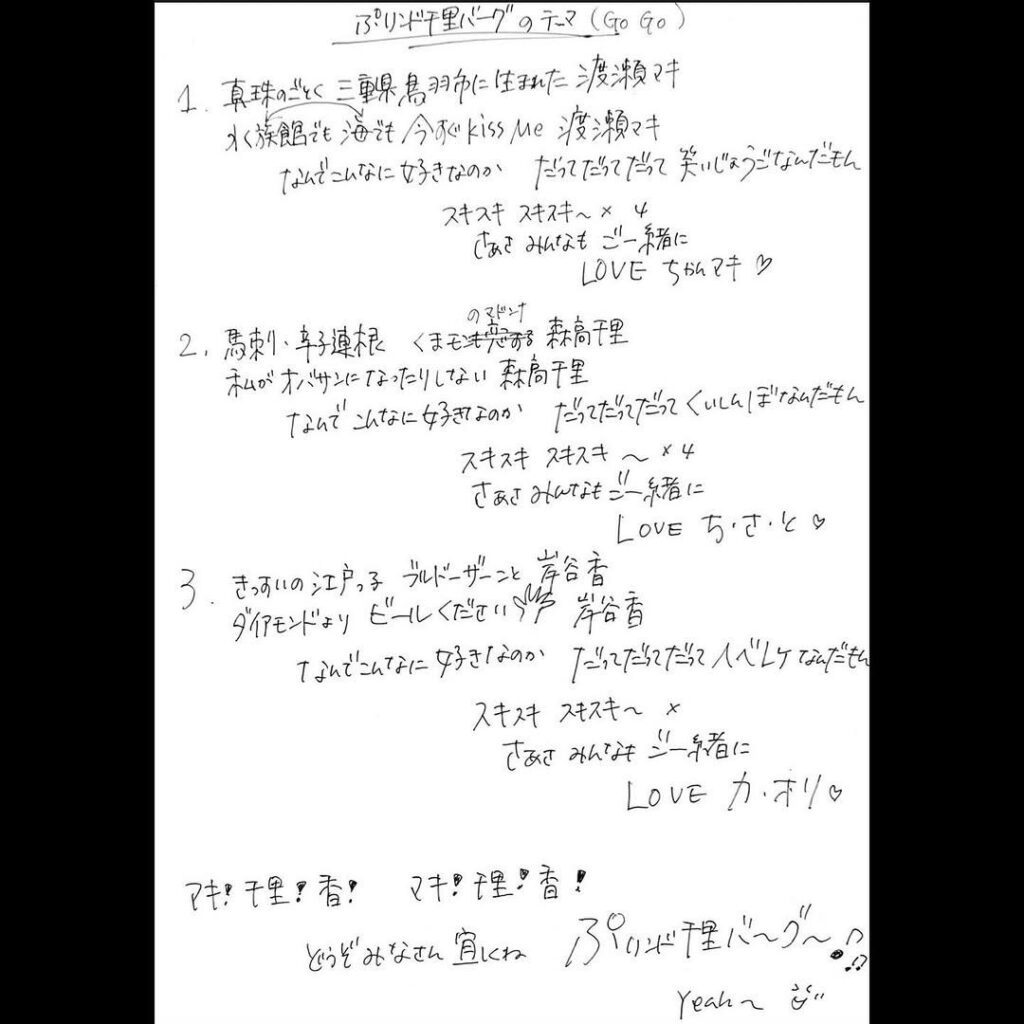 ぷリンド千里バーグのテーマ(GO GO)
1. 真珠のごとく 三重県鳥羽市に生まれた 渡瀬マキ
水族館でも 海でも 今すぐ kiss Me 渡瀬マキ
なんでこんなに好きなのか だってだってだって 笑いじょうごなんだもん
スキスキ スキスキ〜 × 4
さあさ みんなも ご一緒に
LOVE ちゃんマキ ♡
のマドンナ
2. 馬刺・辛子連根 くまモ 森高千里
私がオバサンになったりしない 森高千里
なんで こんなに好きなのか だってだってだって くいしんぼなんだもん
スキスキ スキスキ 〜 × 4
さあさ みんなも ご一緒に
LOVE ち・さ・と ♡
3. きっすいの江戸っ子 ブルドーザーこと 岸谷香
ダイアモンドより ビールください 岸谷香
なんでこんなに 好きなのか だってだってだって 人ベレケなんだもん
スキスキ スキスキ〜 ×
さあさ みんなも ご一緒に
LOVE カ・オリ ♡
マキ! 千里! 香! マキ! 千里! 香!
どうぞみなさん 宜しくね ぷリンド千里バ〜グ〜♪♫
Yeah〜